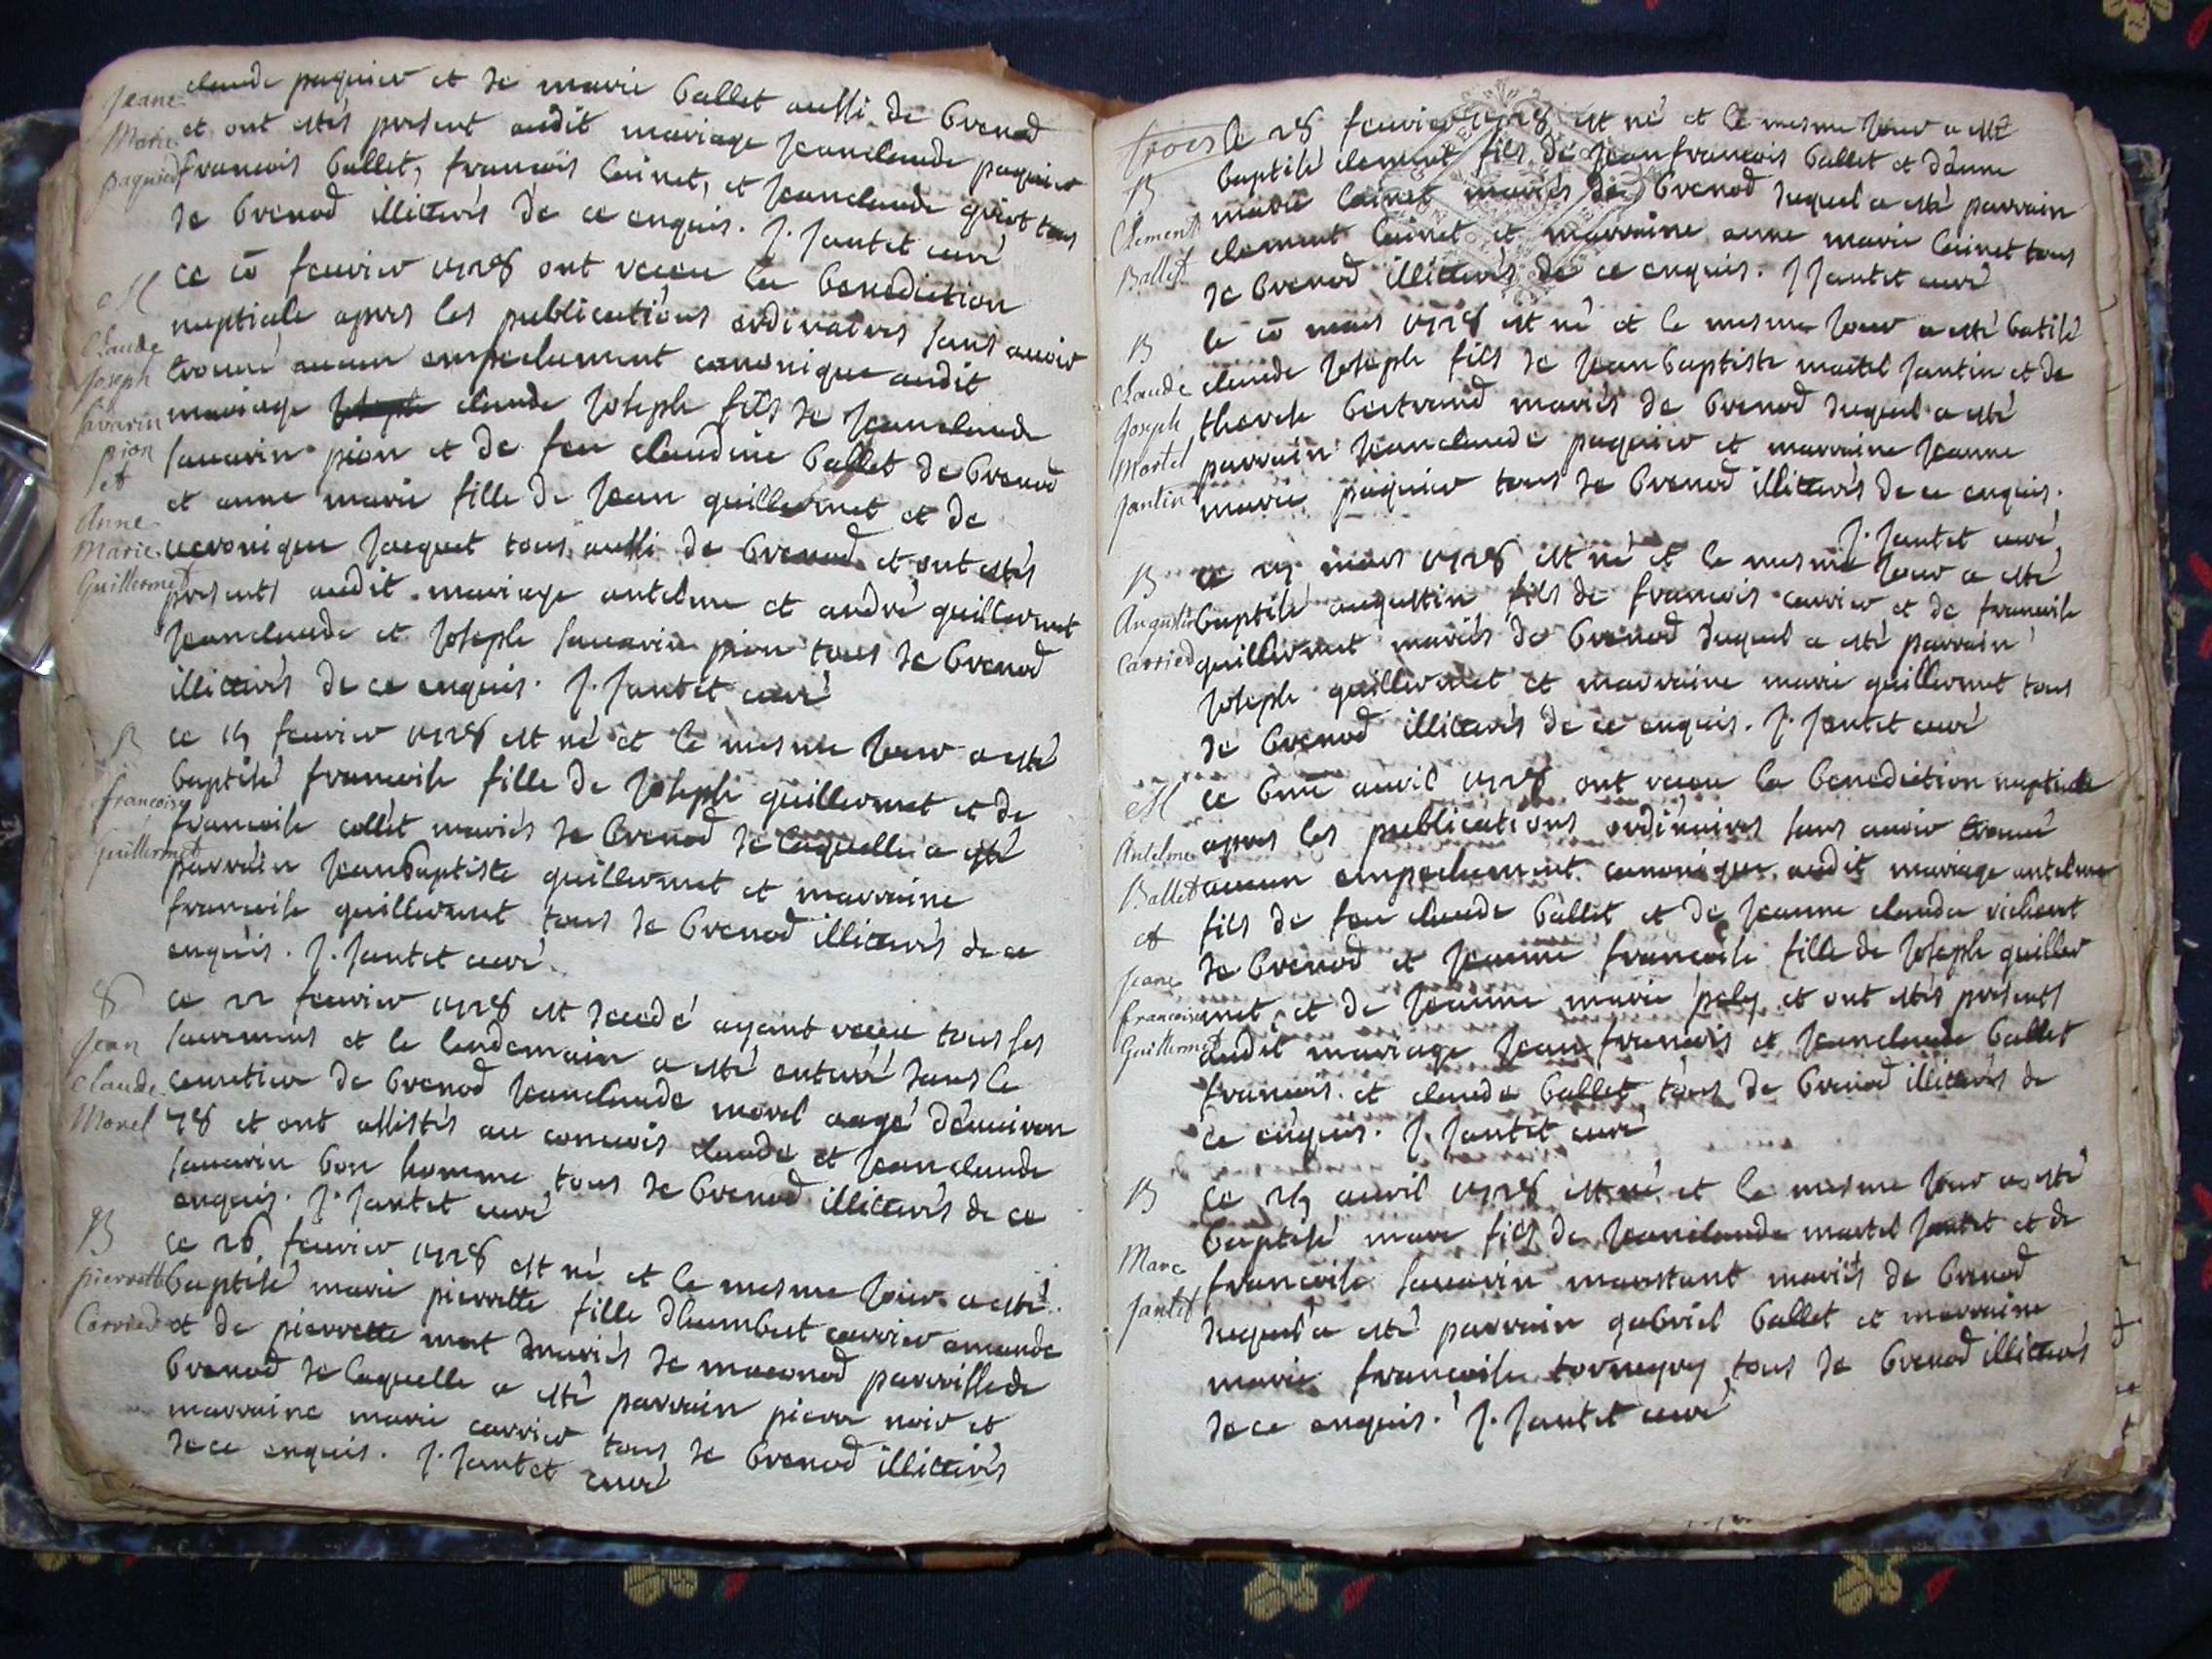 Jeane
Marie
paquied
claude paquier et de marie ballet aussi de brenod
et ont estés present audit mariage Jeanclaude paquier
francois ballet, francois Coinet, et Jeanclaude guiot tous
de brenod illiterés de ce enquis. J. Jantet curé
M
Claude
Joseph
Savarin
pion
et
Anne
Marie
Guillermet
ce 10 feurier 1728 ont receu la benediction
nuptiale apres les publications ordinaires sans auoir
trouué aucun empechement canonique audit
mariage claude Joseph fils de Jeanclaude
sauarin pion et de feu claudine ballet de brenod
et anne marie fille de Jean guillermet et de
ueronique Jacquet tous aussi de brenod et ont estés
presents audit mariage antelme et andré guillermet
Jeanclaude et Joseph sauarin pion tous de brenod
illiterés de ce enquis. J. Jantet curé
B
francoise
Guillermet
ce feurier 1728 est né et le mesme Jour a esté
baptisé francoise fille de Joseph guillermet et de
francoise collet mariés de brenod de laquelle a esté
parrain Jeanbaptiste guillermet et marraine
francoise guillermet tous de brenod illiterés de ce
enquis. J. Jantet curé.
Jean
Claude
Morel
ce 22 feurier 1728 est decedé ayant receu tous ses
sacremens et le lendemain a esté enterré dans le
cemetiere de brenod Jeanclaude morel aagé d'enuiron
78 et ont assistés au conuois claude et Jeanclaude
sauarin bon homme tous de brenod illiterés de ce
enquis. J. Jantet curé
B
pierrette
Carried
ce 26 feurier 1728 est né et le mesme Jour a esté
baptisé marie pierrette fille d'humbert carrier amande
et de pierrette mariés de maconod parroisse de
brenod de laquelle a esté parrain pierre noir et
marraine marie carrier tous de brenod illiterés
de ce enquis. J. Jantet curé
trois
B
Clement
Ballet
le 28 feurier 1728 est né et le mesme Jour a esté
baptisé clement fils de Jeanfrancois ballet et d'anne
marie Coinet mariés de brenod duquel a esté parrain
clement Coinet et marraine anne marie Coinet tous
de brenod illiterés de ce enquis. J Jantet curé
B
Claude
Joseph
Martel
Jantin
le 10 mars 1728 est né et le mesme Jour a esté batisé
claude Joseph fils de Jeanbaptiste martel Jantin et de
therese bertrand mariés de brenod duquel a esté
parrain Jeanclaude paquier et marraine Jeanne
marie paquier tous de brenod illiterés de ce enquis.
J. Jantet curé
B
Augustin
Carried
ce mars 1728 est né et le mesme Jour a esté
baptisé augustin fils de francois carrier et de francoise
guillermet mariés de brenod duquel a esté parrain
Joseph guillermet et marraine marie guillermet tous
de brenod illiterés de ce enquis. J. Jantet curé
M
Antelme
Ballet
et
Jeane
francoise
Guillermet
ce auril 1728 ont receu la benediction nuptiale
apres les publications ordinaires sans auoir trouué
aucun empechement canonique audit mariage antelme
fils de feu claude ballet et de Jeanne claude richerot
de brenod et Jeanne francoise fille de Joseph guiller
met, et de Jeanne marie pely et ont estés presents
audit mariage Jean francois et Jeanclaude ballet
francois et claude ballet tous de brenod illiterés de
ce enquis. J. Jantet curé
B
Marc
Jantet
ce auril 1728 est né et le mesme Jour a esté
baptisé marc fils de Jeanclaude martel Jantet et de
francoise sauarin marstant mariés de brenod
duquel a esté parrain gabriel ballet et marraine
marie francoise tous de brenod illiterés
de ce enquis. J. Jantet curé